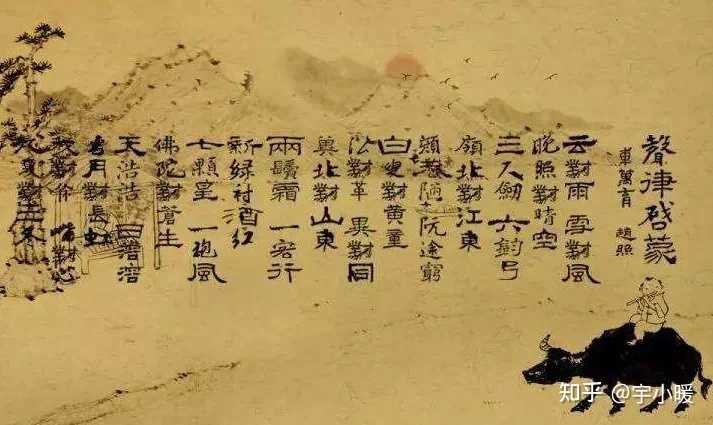 聲律啓蒙
車萬育 趙照
云對雨 雪對風
晚照對晴空
三尺劍 六鈞弓
嶺北對江東
顏巷陋 阮途窮
白叟對黃童
沿對革 異對同
冀北對山東
兩鬢霜 一客行
新綠衬酒紅
七顆星 一砲風
佛陀對蒼生
天浩浩 日溶溶
月對長虹
對 對心
對三冬
知乎 @宇小暖